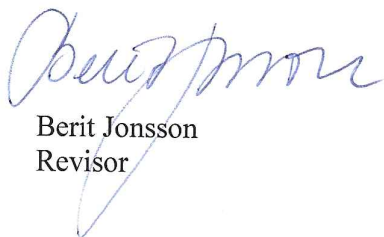 Berit Jonsson
Berit Jonsson
Revisor